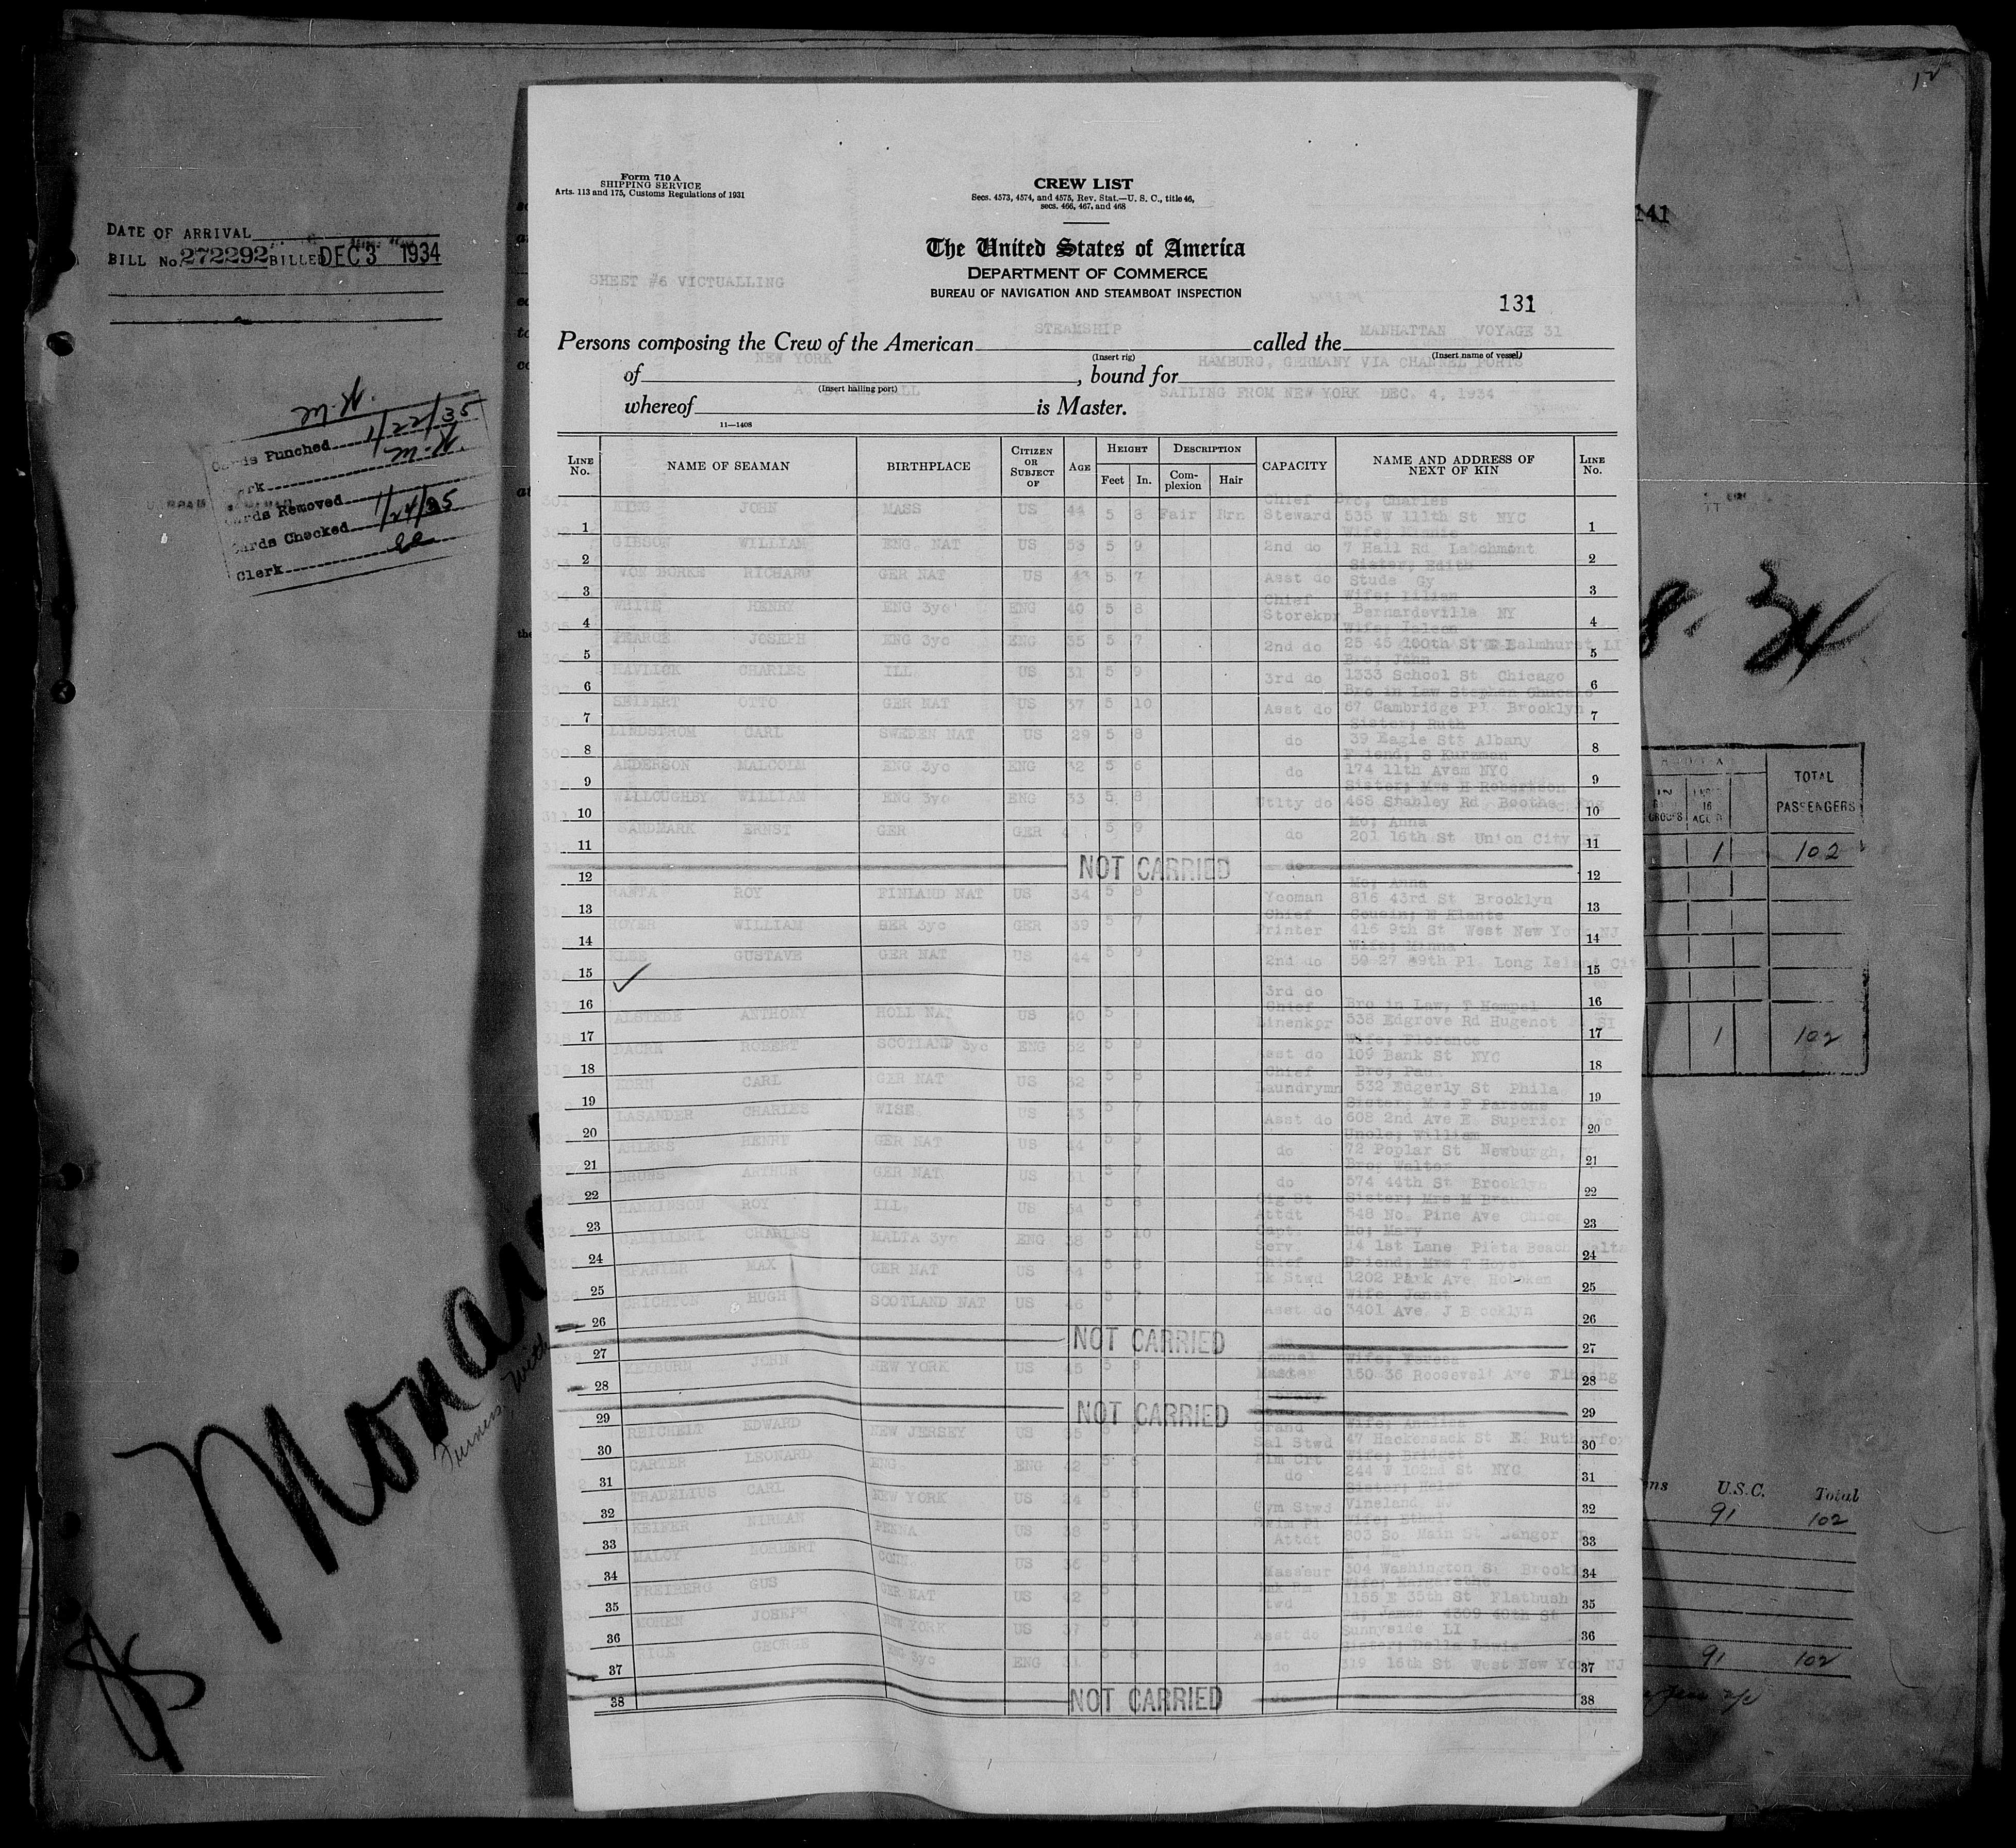 12
DATE OF ARRIVAL
BILL No. 272292 BILLED DEC 3 1934
K.M.
Cards Punched 11/22/35
K.M.
Cards Removed
Cards Checked 11/24/35
Clerk
Monar
Furness With
141
8. 34
TOTAL
PASSENGERS
1 102
1 102
U.S.C. Total
91 102
91 102
Form 710 A
SHIPPING SERVICE
Arts. 113 and 175, Customs Regulations of 1931
CREW LIST
Secs. 4573, 4574, and 4575, Rev. Stat.—U. S. C., title 46,
secs. 466, 467, and 468
The United States of America
DEPARTMENT OF COMMERCE
BUREAU OF NAVIGATION AND STEAMBOAT INSPECTION
SHEET #6 VICTUALLING
131
STEAMSHIP MANHATTAN VOYAGE 31
Persons composing the Crew of the American called the
(Insert rig) (Insert name of vessel)
NEW YORK HAMBURG, GERMANY VIA CHANNEL PORTS
of , bound for
(Insert hailing port)
SAILING FROM NEW YORK DEC. 4, 1934
whereof is Master.
11—1408
LINE No. NAME OF SEAMAN BIRTHPLACE CITIZEN OR SUBJECT OF AGE HEIGHT Feet In. DESCRIPTION Complexion Hair CAPACITY NAME AND ADDRESS OF NEXT OF KIN LINE No.
Chief Bro, Charles
1 KING JOHN MASS US 44 5 8 Fair Brn Steward 535 W 111th St NYC 1
Wife; Minnie
2 GIBSON WILLIAM ENG. NAT US 53 5 9 2nd do 7 Hall Rd 2
Sister; Edith
3 VON BORKE RICHARD GER NAT US 43 5 7 Asst do Stude Gy 3
Chief Wife; Lilian
4 WHITE HENRY ENG 3yc ENG 40 5 8 Storekpr Bernardsville NY 4
5 PEARCE JOSEPH ENG 3yc ENG 35 5 7 2nd do 25 45 100th St 5
Bro; John
6 HAVLICK CHARLES ILL. US 31 5 9 3rd do 1333 School St Chicago 6
Bro in Law Stephen
7 SEIFERT OTTO GER NAT US 37 5 10 Asst do 67 Cambridge Pl Brooklyn 7
Sister; Ruth
8 LINDSTROM CARL SWEDEN NAT US 29 5 8 do 39 Eagle St Albany 8
Friend; S Kurzman
9 ANDERSON MALCOLM ENG 3yc ENG 42 5 6 do 174 11th Avem NYC 9
Sister; Mrs H Robertson
10 WILLOUGHBY WILLIAM ENG 3yc ENG 33 5 8 Utlty do 468 Stabley Rd 10
Mo; Anna
11 SANDMARK ERNST GER GER 5 9 do 201 16th St Union City 11
12 NOT CARRIED do 12
Mo; Anna
13 ROY FINLAND NAT US 34 5 8 Yeoman 816 43rd St Brooklyn 13
Chief Cousin; E Klante
14 HOYER WILLIAM GER 3yc GER 39 5 7 Printer 416 9th St West New York NJ 14
Wife; Minna
15 GUSTAVE GER NAT US 44 5 9 2nd do 50 27 49th Pl Long Island Cit 15
16 3rd do 16
Chief Bro in Law, T Hempel
17 ALSTEDE ANTHONY HOLL NAT US 40 5 7 Linenkpr 538 Edgrove Rd Hugenot SI 17
Wife; Florence
18 DACRE ROBERT SCOTLAND 3yc ENG 52 5 9 Asst do 109 Bank St NYC 18
Chief Bro; Paul
19 KORN CARL GER NAT US 32 5 8 Laundrymn 532 Edgerly St Phila 19
Sister; Mrs F Parsons
20 LASANDER CHARLES WISE US 43 5 7 Asst do 608 2nd Ave E Superior 20
Uncle; William
21 AHLERS HENRY GER NAT US 44 5 9 do 72 Poplar St Newburgh, 21
Bro; Walter
22 BRUNS ARTHUR GER NAT US 31 5 7 do 574 44th St Brooklyn 22
Sister; Mrs M
23 HANKINSON ROY ILL. US 34 5 8 Attdt 548 No. Pine Ave 23
Capt. Mo; Mary
24 CHARLES MALTA 3yc ENG 38 5 10 Serv. 34 1st Lane Pieta Beach Malta 24
Chief Friend; Mrs T Hoyer
25 SPANIER MAX GER NAT US 5 8 Dk Stwd 1202 Park Ave Hoboken 25
Wife, Janet
26 CRICHTON HUGH SCOTLAND NAT US 46 5 7 Asst do 3401 Ave J Brooklyn 26
27 NOT CARRIED do 27
Kennel
28 JOHN NEW YORK US 45 5 8 Master 150 36 Roosevelt Ave 28
29 NOT CARRIED 29
Grand Wife;
30 REICHELT EDWARD NEW JERSEY US 35 5 Sal Stwd 47 Hackensack St E. Rutherfor 30
Wife; Bridget
31 CARTER LEONARD ENG. ENG 42 5 do 244 W 102nd St NYC 31
Sister; Helen
32 TRADELIUS CARL NEW YORK US 24 5 8 Gym Stwd Vineland NJ 32
Wife; Ethel
33 KEIFER PENNA US 38 5 Attdt 803 So. Main St Bangor 33
34 MALOY CONN. US 36 5 Masseur 304 Washington St Brookl 34
35 FREIBERG GUS GER NAT US 42 5 1155 E 35th St Flatbush 35
James 4309 40th St
36 JOSEPH NEW YORK US 37 5 Asst do Sunnyside LI 36
Sister; Della Lewis
37 RICE GEORGE ENG 3yc ENG 31 5 8 do 319 16th St West New York NJ 37
38 NOT CARRIED 38